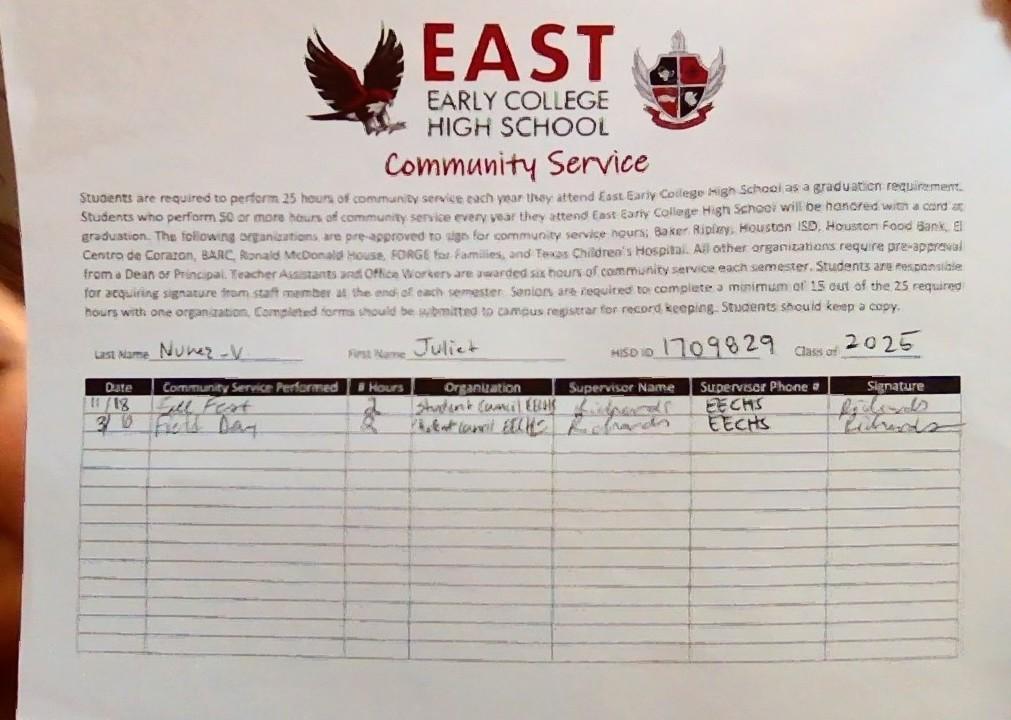 EAST
EARLY COLLEGE
HIGH SCHOOL
Community Service
Students are required to perform 25 hours of community service each year they attend East Early College High School as a graduation requirement.
Students who perform 50 or more hours of community service every year they attend East Early College High School will be honored with a cord at
graduation. The following organizations are pre-approved to sign for community service hours; Baker Ripley, Houston ISD, Houston Food Bank, El
Centro de Corazon, BARC, Ronald McDonald House, FORGE for Families, and Texas Children's Hospital. All other organizations require pre-approval
from a Dean or Principal. Teacher Assistants and Office Workers are awarded six hours of community service each semester. Students are responsible
for acquiring signature from staff member at the end of each semester. Seniors are required to complete a minimum of 15 out of the 25 required
hours with one organization. Completed forms should be submitted to campus registrar for record keeping. Students should keep a copy.
Last Name Nunez-V First Name Juliet HISD ID 1709829 Class of 2025
Date Community Service Performed # Hours Organization Supervisor Name Supervisor Phone # Signature
11/18 Fall Fest 2 Student Council EECHS Richards EECHS Richards
3/6 Field Day 2 Student Council EECHS Richards EECHS Richards